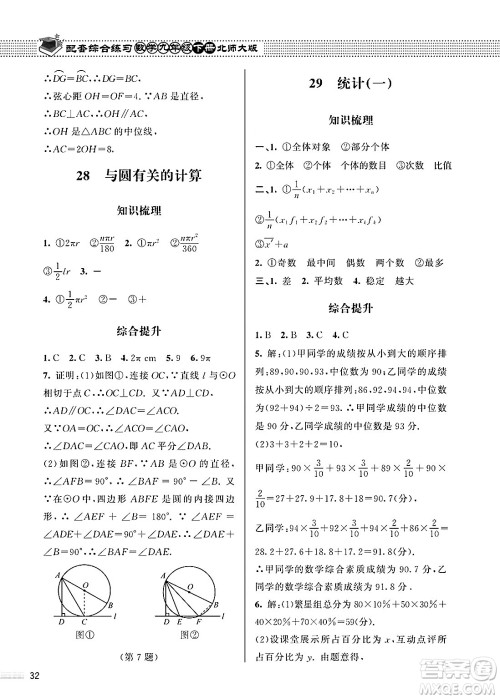 配套综合练习 数学九年级 下册 北师大版
∴DG=CD.
∴弦心距 OH=OF=4.
∵BC⊥AC,∴OH∥AC.
∴OH 是△ABC 的中位线,
∴AC=2OH=8.
28 与圆有关的计算
知识梳理
1. ①2πr ②nπr/180 2. ①πr² ②nπr²/360
③1/2 lr 3. -
4. ①1/2πr² ② - ③ +
综合提升
1. C 2. C 3. B 4. 2π cm 5. 9 6. 9π
7. 证明:(1)如图①,连接 OC.
∵直线 l 与⊙O 相切于点 C,
∴OC⊥l.∵AD⊥l,∴OC∥AD.
∴∠DAC=∠ACO.
∵OA=OC,∴∠ACO=∠CAO.
∴∠DAC=∠CAO,即∠DAC=∠BAC.
(2)如图②,连接 BF,∵AB 是⊙O 的直径,
∴∠AFB=90°.∴∠BAF=90°-∠B.
∵在⊙O 中,四边形 ABFE 是圆的内接四边
形,∴∠AEF+∠B=180°.
又∵∠AEF=∠ADE+∠DAE=90°+
∠DAE,∴∠BAF=∠DAE.
A O B D C l
图①
A O B D E F l
图②
(第 7 题)
32
29 统计(一)
知识梳理
一、1. ①全体对象 ②部分个体
2. ①全体 ②个体 个体的数目 ③次数 比值
二、1. ①1/n(x₁+x₂+…+xₙ)
②1/n(x₁f₁+x₂f₂+…+xₖfₖ)
③x̄′+a
2. ①奇数 最中间 偶数 两个数 ②最多
三、1. 差 2. 平均数 4. 稳定 越大
综合提升
1. B 2. C 3. B 4. C
5. 解:(1)甲同学的成绩按从小到大的顺序排
列:89,90,90,93,∴甲同学成绩的中位数是
90 分;乙同学的成绩按从小到大的顺序排
列:86,92,94,94,∴乙同学成绩的中位数是
93 分.
(2)3+3+2+2=10,
甲同学:90×3/10+93×3/10+89×2/10+90×
2/10=27+27.9+17.8+18=90.7(分),
乙同学:94×3/10+92×3/10+94×2/10+86×2/10=
28.2+27.6+18.8+17.2=91.8(分).
∴甲同学的数学综合素质成绩为 90.7 分,
乙同学的数学综合素质成绩为 91.8 分.
6. 解:(1)繁星组总分为 80×10%+80×30%
+80×20%+90×40%=84(分).
(2)设课堂展示所占百分比为 x,实现目标
所占百分比为 y.由题意,得